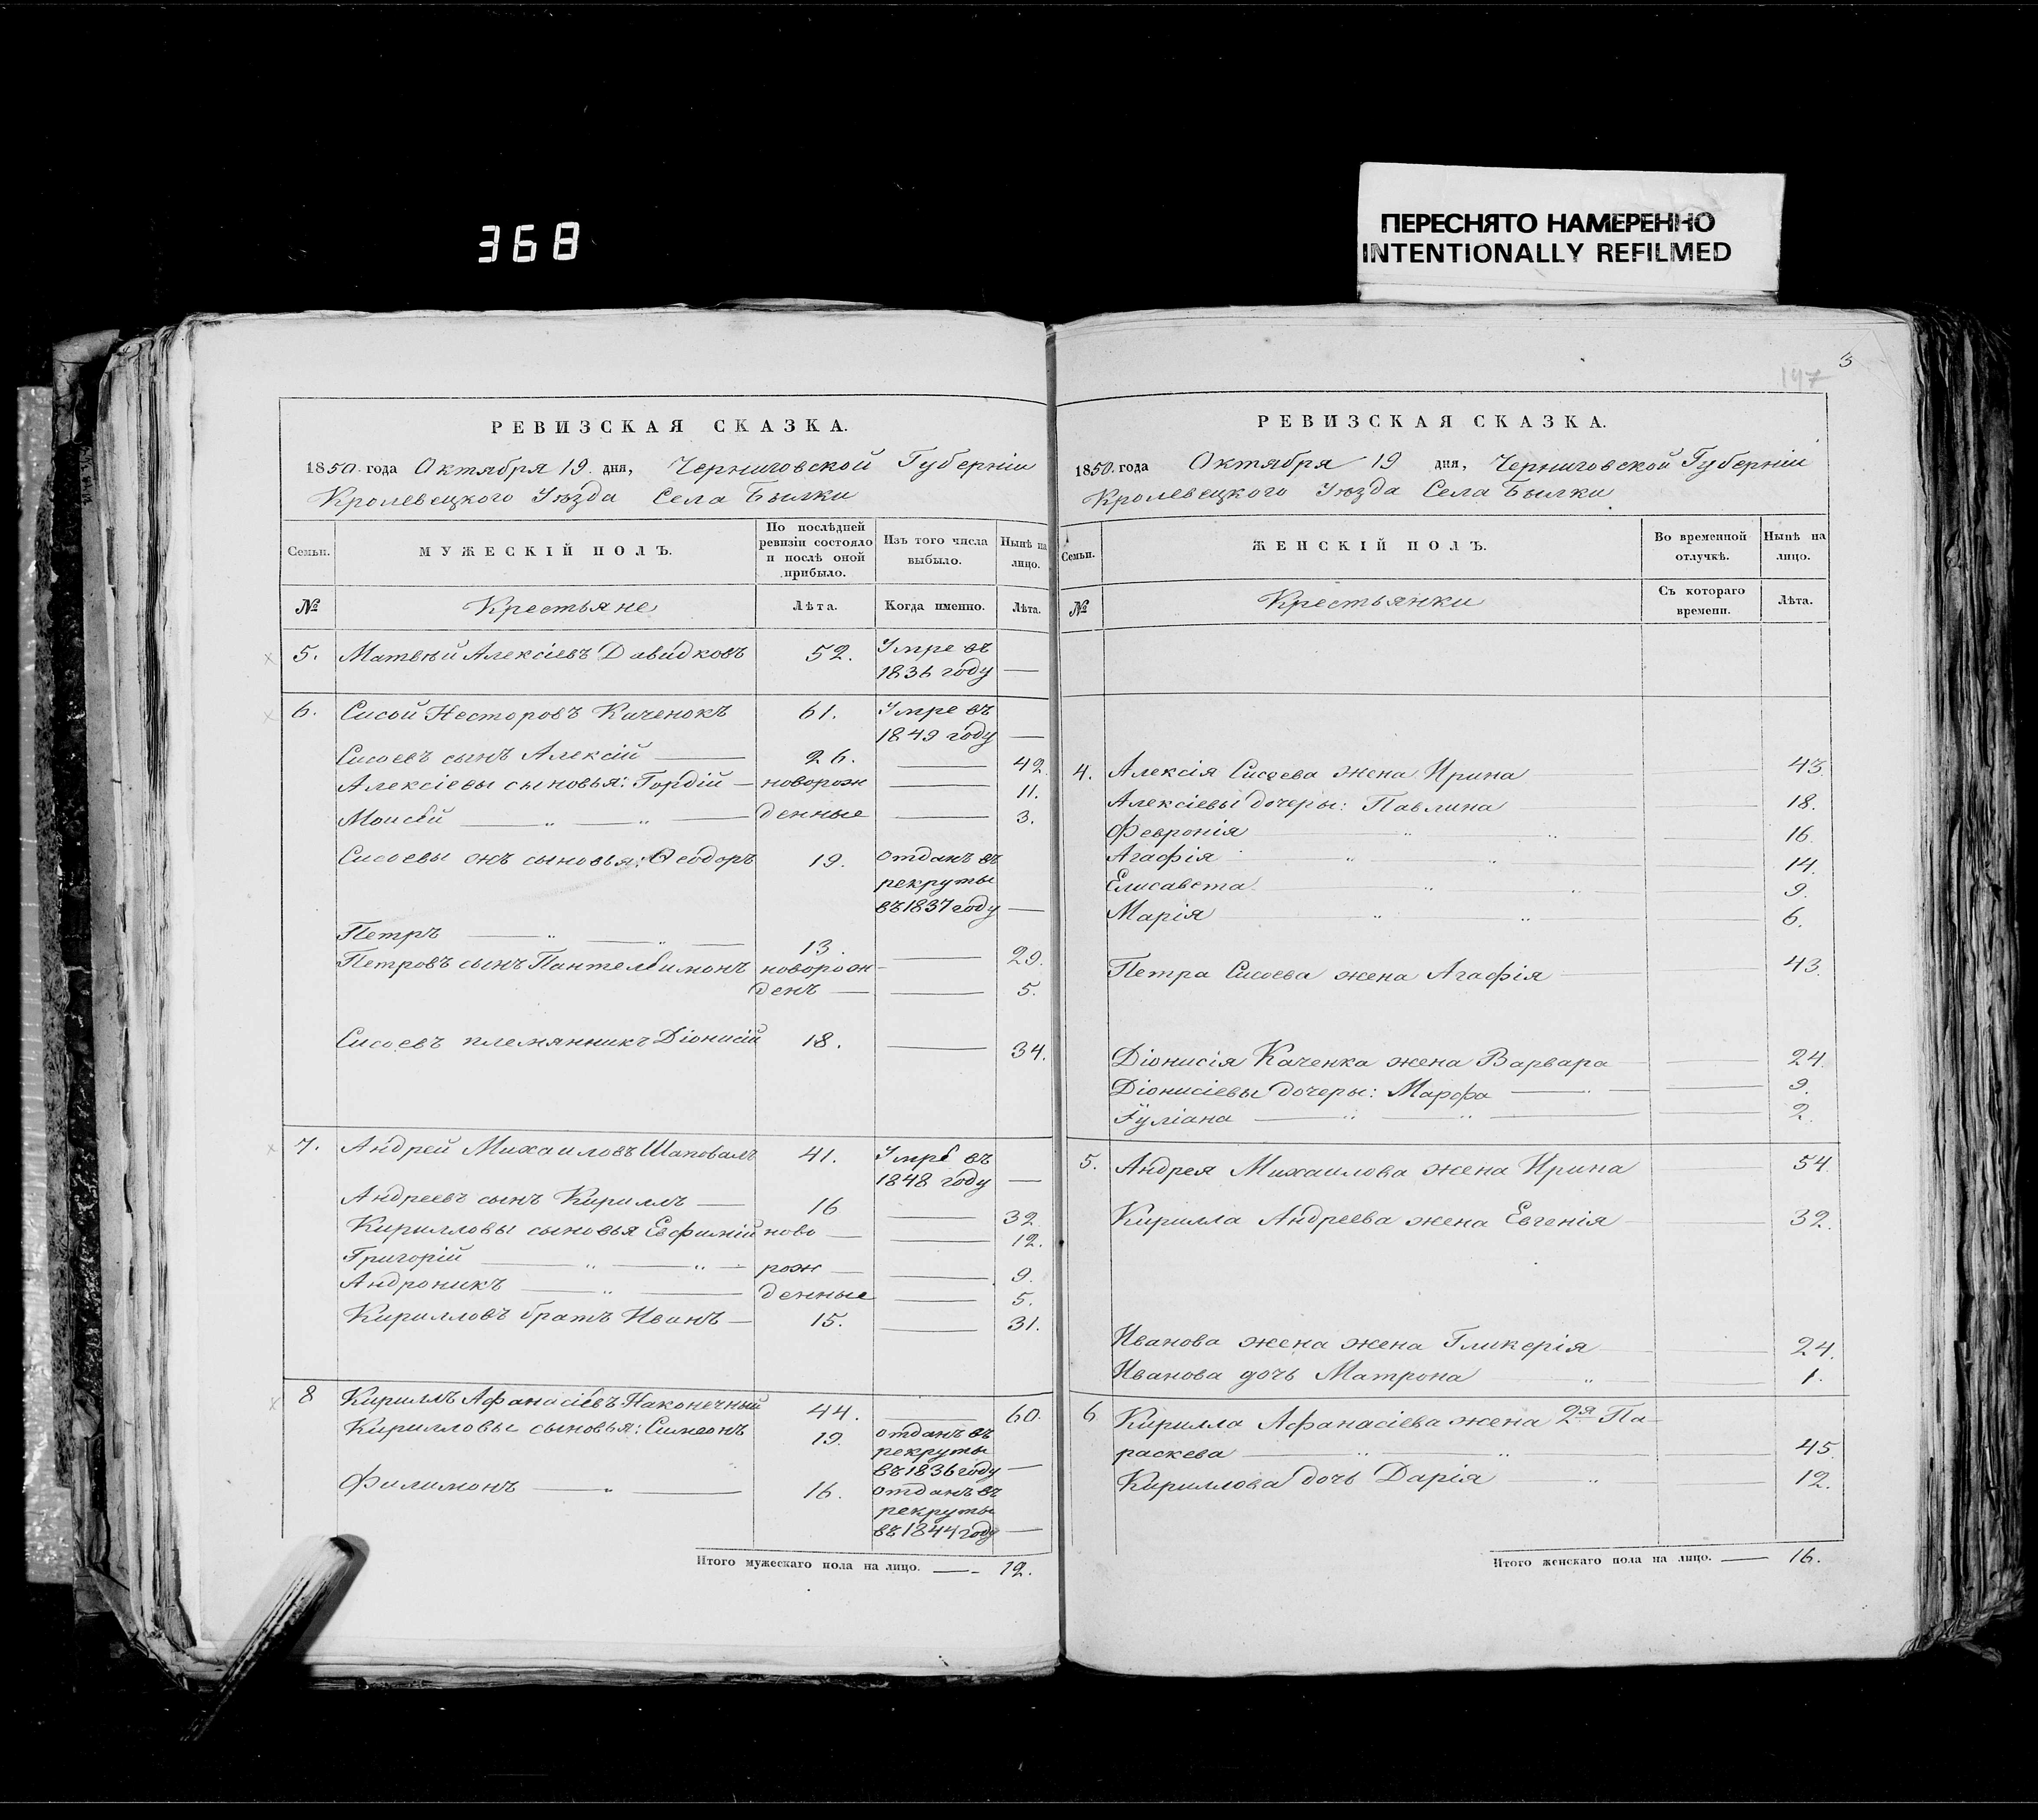 368
ПЕРЕСНЯТО НАМЕРЕННО
INTENTIONALLY REFILMED
РЕВИЗСКАЯ СКАЗКА.
1850. года Октября 19. дня, Черниговской Губерніи
Кролевецкого Уѣзда Села Былки
Семьи. МУЖЕСКІЙ ПОЛЪ. По послѣдней ревизіи состояло и послѣ оной прибыло. Изъ того числа выбыло. Нынѣ на лицо.
№ Крестьяне Лѣта. Когда именно. Лѣта.
5. Матвѣй Алексіевъ Давидковъ 52. Умре въ
1836 году —
6. Сисой Несторовъ Каченокъ 61. Умре въ
1849 году —
Сисоевъ сынъ Алексій — 26. — 42.
Алексіевы сыновья: Гордій — новорож — 11.
Моисей — „ — „ — денные — 3.
Сисоевы онъ сыновья: Ѳеодоръ 19. отданъ въ
рекруты
въ 1837 году —
Петръ — „ — „ — 13. — 29.
Петровъ сынъ Пантелеимонъ новорож-
денъ — — 5.
Сисоевъ племянникъ Діонисій 18. — 34.
7. Андрей Михаиловъ Шаповалъ 41. Умре въ
1848 году —
Андреевъ сынъ Кириллъ — 16 — 32.
Кирилловы сыновья Евфимій ново — — 12.
Григорій — „ — „ — рож — — 9.
Андроникъ — „ — денные — 5.
Кирилловъ братъ Иванъ — 15. — 31.
8 Кириллъ Афанасіевъ Наконечный 44. — 60.
Кирилловы сыновья: Симеонъ 19. отданъ въ
рекруты
въ 1836 году —
Филимонъ — „ — 16. отданъ въ
рекруты
въ 1844 году —
Итого мужескаго пола на лицо. — 12.
3
197
РЕВИЗСКАЯ СКАЗКА.
1850. года Октября 19 дня, Черниговской Губерніи
Кролевецкого Уѣзда Села Былки
Семьи. ЖЕНСКІЙ ПОЛЪ. Во временной отлучкѣ. Нынѣ на лицо.
№ Крестьянки Съ котораго времени. Лѣта.
4. Алексія Сисоева жена Ирина — 43.
Алексіевы дочеры: Павлина — 18.
Февронія — „ — „ — 16.
Агафія „ „ — 14.
Елисавета „ „ — 9.
Марія „ „ — 6.
Петра Сисоева жена Агафія — 43.
Діонисія Каченка жена Варвара — 24.
Діонисіевы дочеры: Марфа — 9.
Іуліана — „ — „ — 2.
5. Андрея Михаилова жена Ирина — 54.
Кирилла Андреева жена Евгенія — 32.
Иванова жена жена Гликерія — 24.
Иванова дочь Матрона „ — 1.
6 Кирилла Афанасіева жена 2я Па-
раскева — „ — „ — 45.
Кириллова дочь Дарія — „ — 12.
Итого женскаго пола на лицо. — 16.